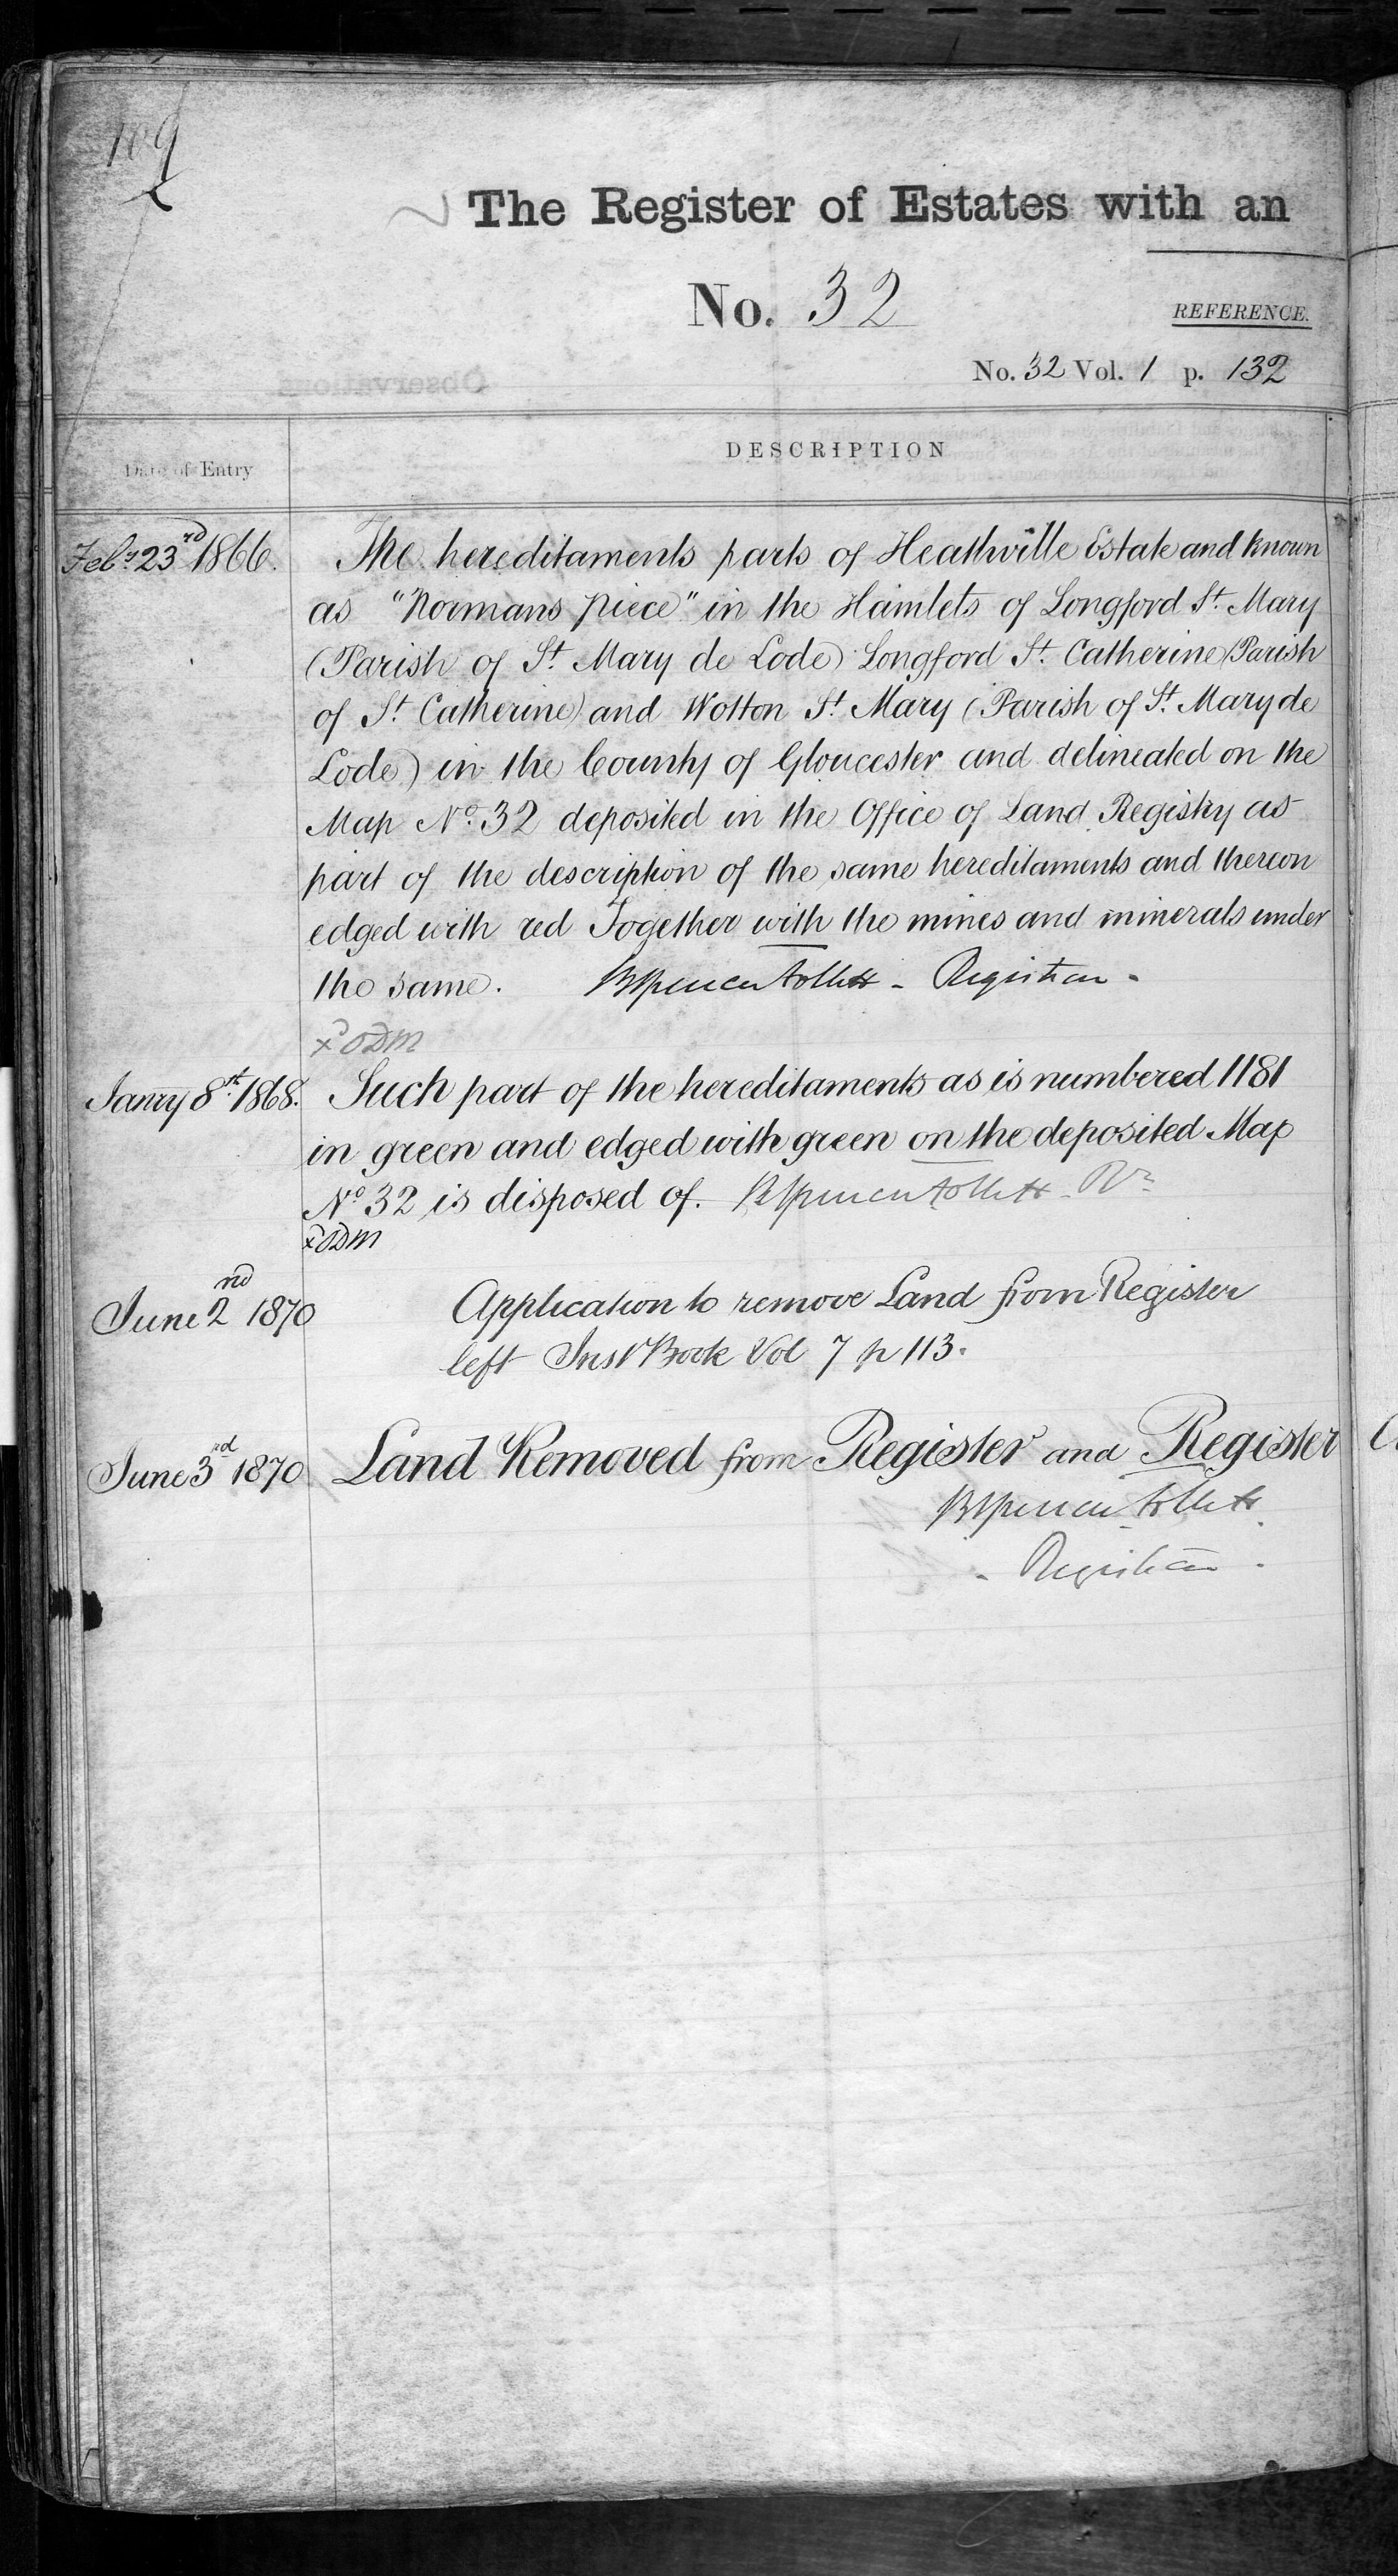 109
The Register of Estates with an
No. 32
REFERENCE.
No. 32 Vol. 1 p. 132
Date of Entry
DESCRIPTION
Feby 23rd 1866.
The hereditaments parts of Heathville Estate and known
as "Normans Piece" in the Hamlets of Longford St. Mary
(Parish of St. Mary de Lode) Longford St. Catherine (Parish
of St. Catherine) and Wotton St. Mary (Parish of St. Mary de
Lode) in the County of Gloucester and delineated on the
Map No. 32 deposited in the Office of Land Registry as
part of the description of the same hereditaments and thereon
edged with red Together with the mines and minerals under
the same. BSpencer Follett - Registrar -
Janry 8th 1868.
Such part of the hereditaments as is numbered 1181
in green and edged with green on the deposited Map
No. 32 is disposed of. BSpencer Follett - Rr
June 2nd 1870
Application to remove Land from Register
left Inst Book Vol 7 p 113.
June 3rd 1870
Land Removed from Register and Register
BSpencer Follett
- Registrar -